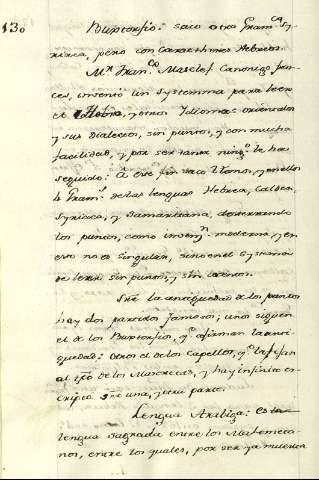 130
Buxtorfio: saco otra Gram.ca Sy-
riaca, pero con Caracteres Hebreos.
Mr. Fran.co Masclef Canonigo fran-
ces, invento un systemma para leer
el Hebreo, y otros Idiomas orientales
y sus dialectos, sin puntos, y con mucha
facilidad, y por ser rara ning.o le ha
seguido: A este fin saco tomos, y en ellos
la Gram.ca de las lenguas Hebrea, Caldea,
Syriaca, y Samaritana, desterrando
los puntos, como invenn. moderna, y en
esto no es singular, sino en el systema
de leer sin puntos, y sin acentos.
Sre la antiguedad de los puntos
hay dos partidos famosos; unos siguen
el de los Buxtorfios, q.e afirman la anti-
guedad: Otros el de los Capellos, q.e la fixan
al tpo de los Masoretas, y hay infinito es-
cripto sre una, y otra parte.
Lengua Arabiga: Esta
lengua sagrada entre los Mahometa-
nos, entre los quales, por ser ya muerta